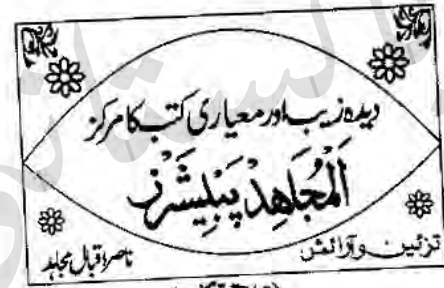 دیدہ زیب اور معیاری کتب کا مرکز
اَلْمُجَاهِدْ پَبلِیشَرز
تزئین و آرائش
ناصر اقبال مجاہد